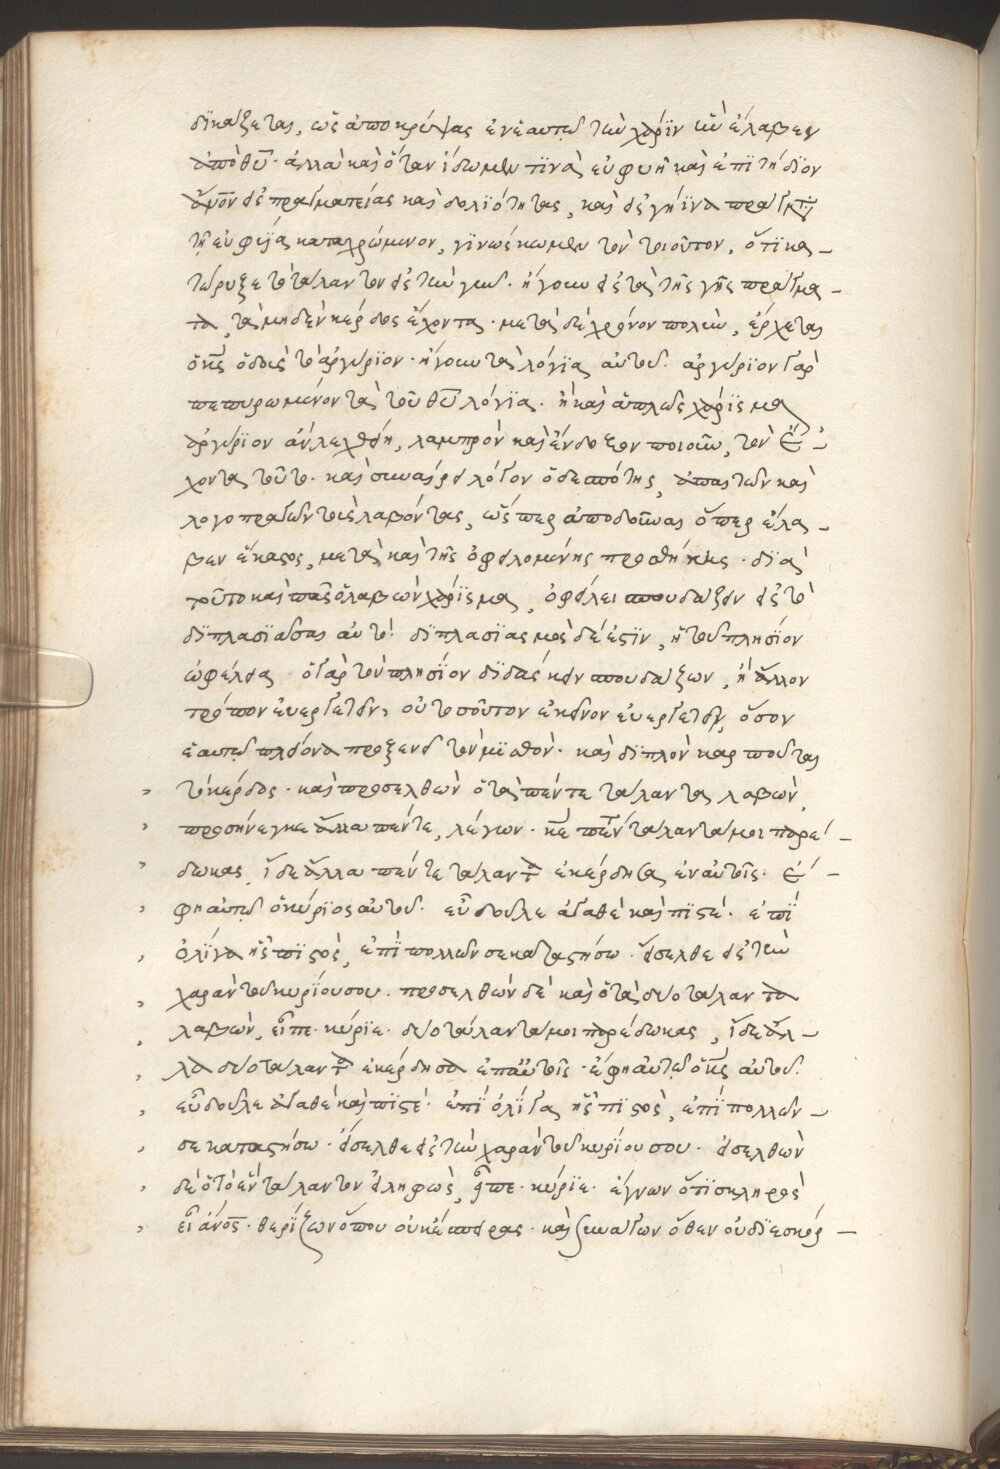 δικάζεται, ὡς ἀποκρύψας ἐν ἑαυτῷ τὴν χάριν ἣν ἔλαβεν
ἀπὸ θυ̅· ἀλλὰ καὶ ὅταν ἴδωμεν τινὰ εὐφυῆ καὶ ἐπιτήδιον
ὄντα εἰς πραγματείας καὶ δολιότητας, καὶ εἰς γήϊνα πράγματα
τῇ εὐφυΐᾳ καταχρώμενον, γινώσκωμεν τὸν τοιοῦτον, ὅτι κα-
τώρυξε τὸ τάλαντον εἰς τὴν γῆν· ἤγουν εἰς τὰ τῆς γῆς πράγμα-
τα, τὰ μηδὲν κέρδος ἔχοντα· μετὰ δὲ χρόνον πολὺν, ἔρχεται
ὁ κς̅ ὁ δοὺς τὸ ἀργύριον· ἤγουν τὰ λόγια αὐτοῦ· ἀργύριον γὰρ
πεπυρωμένον τὰ τοῦ θυ̅ λόγια· ἢ καὶ ἁπλῶς χάρισμα
ἀργύριον ἀνελέχθη, λαμπρὸν καὶ ἔνδοξον ποιοῦν, τὸν ἔ-
χοντα τοῦτο· καὶ συναίρει λόγον ὁ δεσπότης, ἀπαιτῶν καὶ
λογοπραγῶν τοὺς λαβόντας, ὥσπερ ἀποδοῦναι ὅπερ ἔλα-
βεν ἕκαστος, μετὰ καὶ τῆς ὀφειλομένης προσθήκης· διὰ
τοῦτο καὶ πᾶς ὁ λαβὼν χάρισμα, ὀφείλει σπουδάζειν εἰς τὸ
διπλασιάσαι αὐτό· διπλασιασμὸς δέ ἐστιν, ἡ τοῦ πλησίον
ὠφέλεια· ὁ γὰρ τὸν πλησίον διδάσκειν σπουδάζων, ἢ ἄλλον
τρόπον εὐεργετεῖν, οὐ τοσοῦτον ἐκεῖνον εὐεργετεῖ, ὅσον
ἑαυτῷ πλείονα προξενεῖ τὸν μισθόν· καὶ διπλὸν καρποῦται
τὸ κέρδος· καὶ προσελθὼν ὁ τὰ πέντε τάλαντα λαβὼν,
προσήνεγκε ἄλλα πέντε, λέγων· κε̅ πέντε τάλαντά μοι παρέ-
δωκας, ἴδε ἄλλα πέντε τάλαντα ἐκέρδησα ἐν αὐτοῖς· ἔ-
φη αὐτῷ ὁ κύριος αὐτοῦ· εὖ δοῦλε ἀγαθὲ καὶ πιστέ· ἐπὶ
ὀλίγα ἦς πιστὸς, ἐπὶ πολλῶν σε καταστήσω· εἴσελθε εἰς τὴν
χαρὰν τοῦ κυρίου σου· προσελθὼν δὲ καὶ ὁ τὰ δύο τάλαντα
λαβὼν, εἶπε· κύριε· δύο τάλαντά μοι παρέδωκας, ἴδε ἄλ-
λα δύο τάλαντα ἐκέρδησα ἐπ᾽ αὐτοῖς· ἔφη αὐτῷ ὁ κς̅ αὐτοῦ·
εὖ δοῦλε ἀγαθὲ καὶ πιστέ· ἐπὶ ὀλίγα ἦς πιστὸς, ἐπὶ πολλῶν
σε καταστήσω· εἴσελθε εἰς τὴν χαρὰν τοῦ κυρίου σου· εἰσελθὼν
δὲ ὁ τὸ ἓν τάλαντον εἰληφὼς, εἶπε· κύριε· ἔγνων ὅτι σκληρὸς
εἶ ἄνο̅ς· θερίζων ὅπου οὐκ ἔσπειρας· καὶ συνάγων ὅθεν οὐ διεσκόρ-